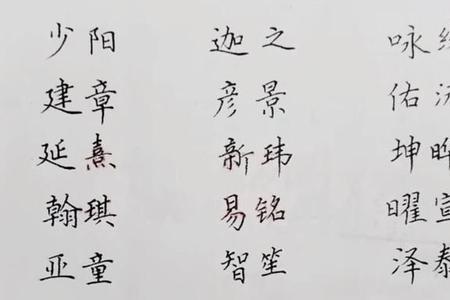 少阳 迦之 咏
建章 彦景 佑
延熹 新玮 坤晔
翰琪 易铭 曜宣
亚童 智笙 泽泰